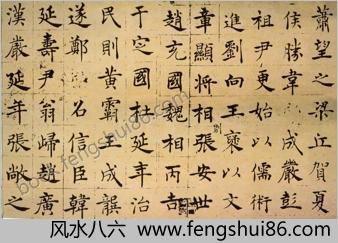 蕭望之梁丘賀夏
侯勝韋成嚴彭
祖尹更始以儒術
進劉向王褒以文
章顯將相張安世
則
趙充國魏相丙吉
于定國杜延年治
民則黃霸王成龔
遂鄭召信臣韓
延壽尹翁歸趙廣
漢嚴延年張敞之
bbs.fengshui86.com
风水八六 www.fengshui86.com